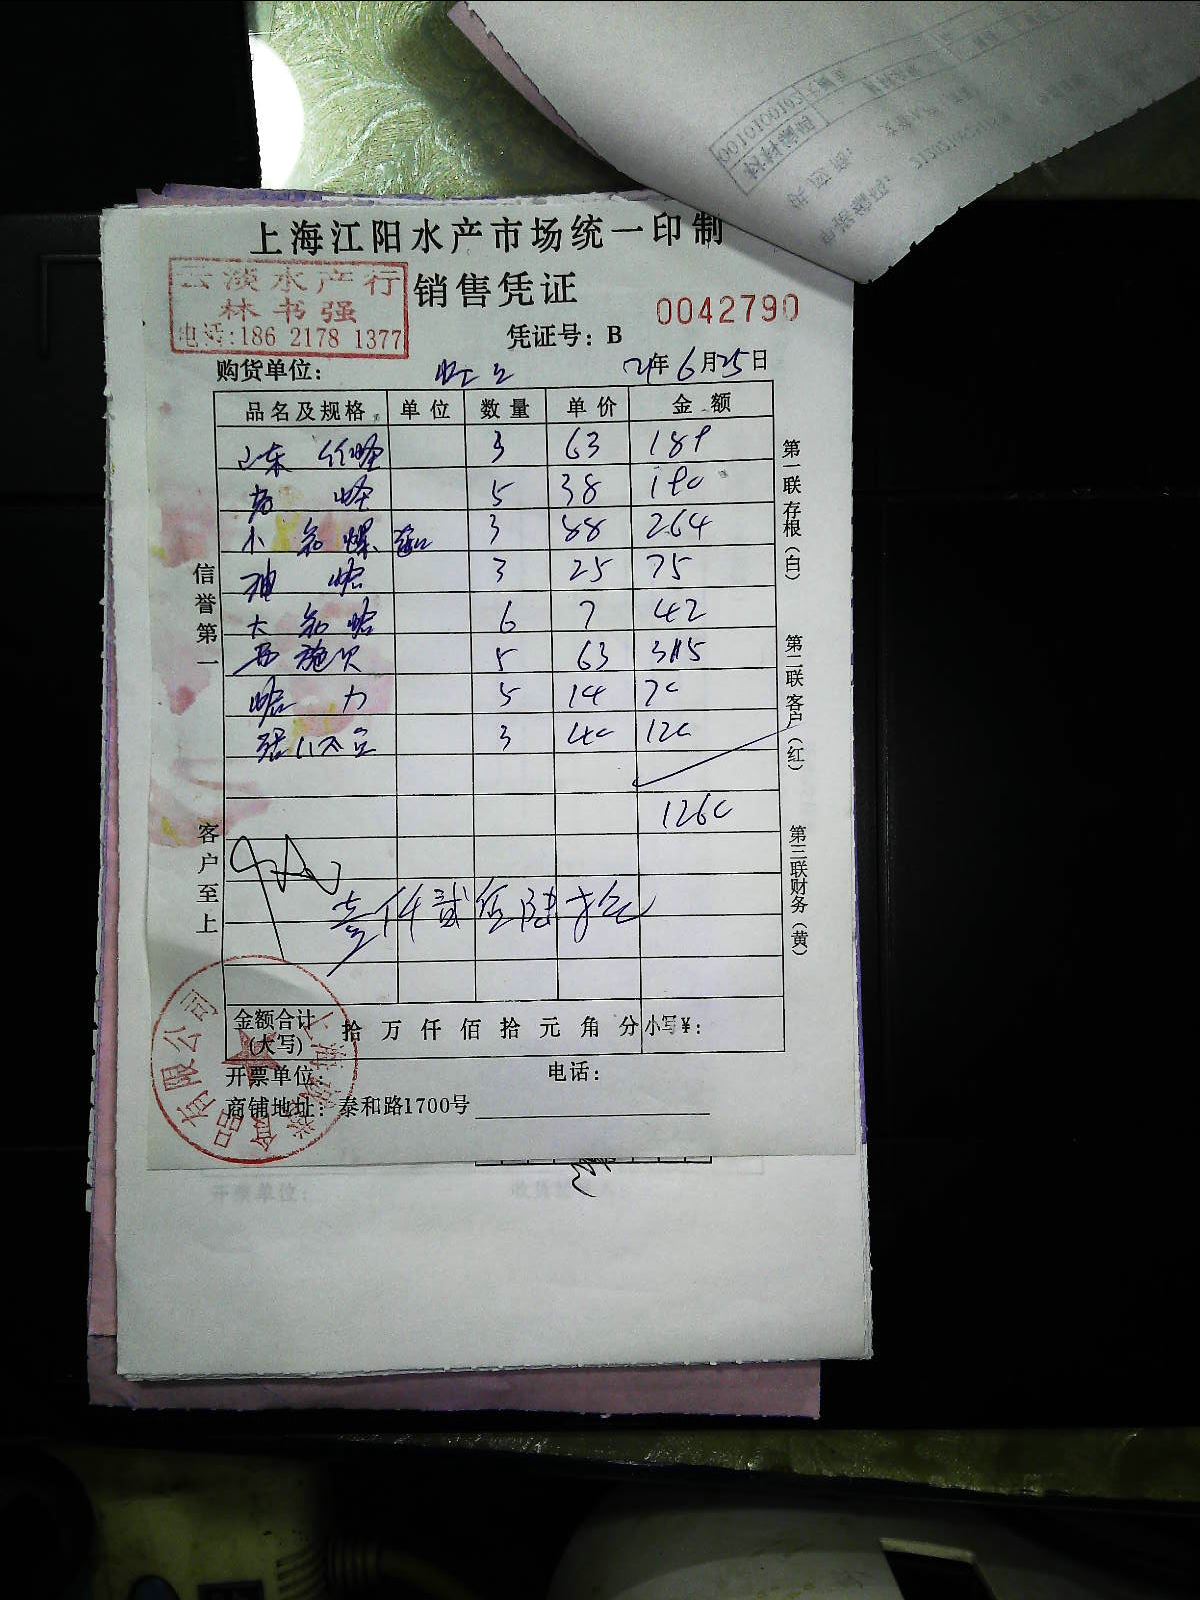 上海江阳水产市场统一印制
云淡水产行
林书强
电话:186 2178 1377
销售凭证
0042790
凭证号: B
购货单位:
21年6月25日
品名及规格 单位 数量 单价 金额
山东 蛏 3 63 189
蛏 5 38 190
小 螺 3 88 264
蛤 3 25 75
大 蛤 6 7 42
西施贝 5 63 315
蛤 力 5 14 70
3 40 120
1260
壹仟贰佰陆拾元
金额合计
(大写)
拾 万 仟 佰 拾 元 角 分 小写¥:
开票单位:
电话:
商铺地址: 泰和路1700号
信誉第一
客户至上
第一联存根(白)
第二联客户(红)
第三联财务(黄)
上海
食品有限公司
开票单位: